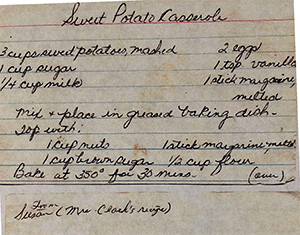 Sweet Potato Casserole
3 cups sweet potatoes, mashed 2 eggs
1 cup sugar 1 tsp. vanilla
1/4 cup milk 1 stick margarine,
melted
Mix & place in greased baking dish.
Top with:
1 cup nuts 1 stick margarine, melt.
1 cup brown sugar 1/2 cup flour
Bake at 350° for 30 mins. (over)
From
Susan (Mrs. Clark's recipe)